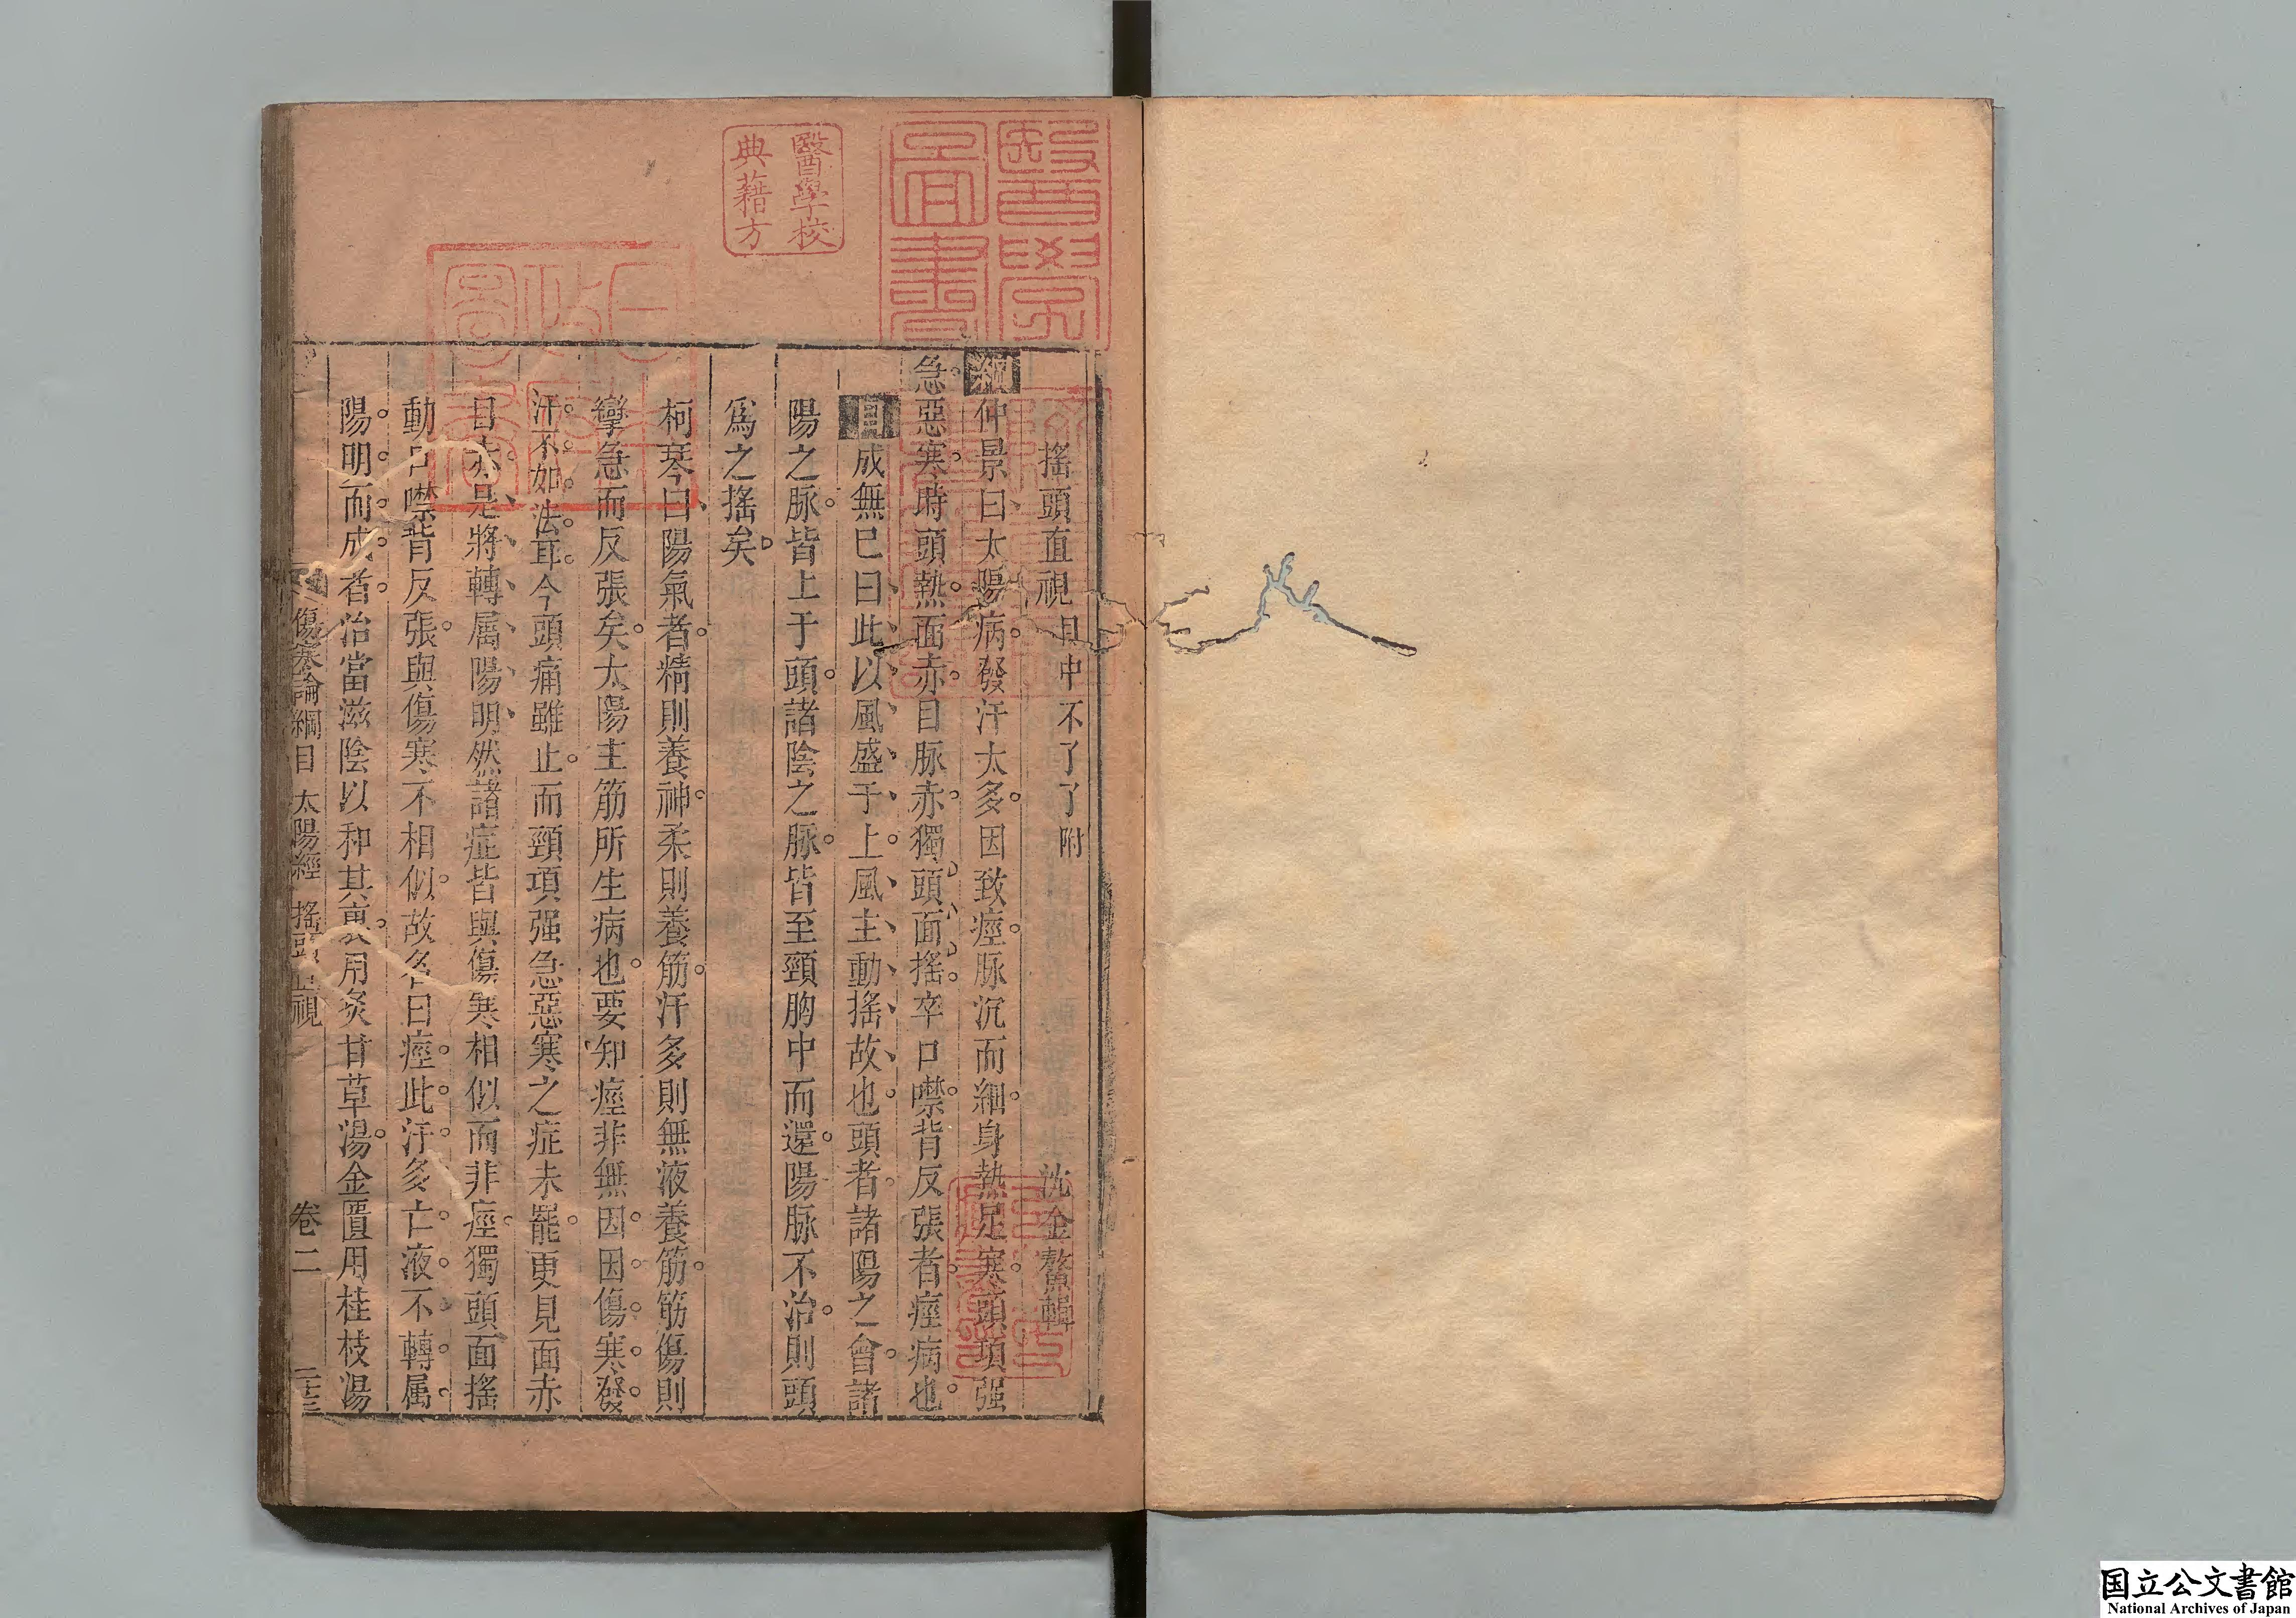 搖頭直視 目中不了了附 沈金鰲輯
綱仲景曰太陽病發汗太多因致痙脉沉而細身熱足寒頭項强
急惡寒時頭熱面赤目脉赤獨頭面搖卒口噤背反張者痙病也
目成無已曰此以風盛于上風主動搖故也頭者諸陽之會諸
陽之脉皆上于頭諸陰之脉皆至頸胸中而還陽脉不治則頭
爲之搖矣
柯琴曰陽氣者精則養神柔則養筋汗多則無液養筋筋傷則
攣急而反張矣太陽主筋所生病也要知痙非無因因傷寒發
汗不如法耳今頭痛雖止而頸項强急惡寒之症未罷更見面赤
目赤是將轉属陽明然諸症皆與傷寒相似而非痙獨頭面搖
動口噤背反張與傷寒不相似故名曰痙此汗多亡液不轉属
陽明而成者治當滋陰以和其裏用炙甘草湯金匱用桂枝湯
傷寒論綱目 太陽經 搖頭直視 卷二
醫學校
典藉方
醫學
圖書
国立公文書館
National Archives of Japan